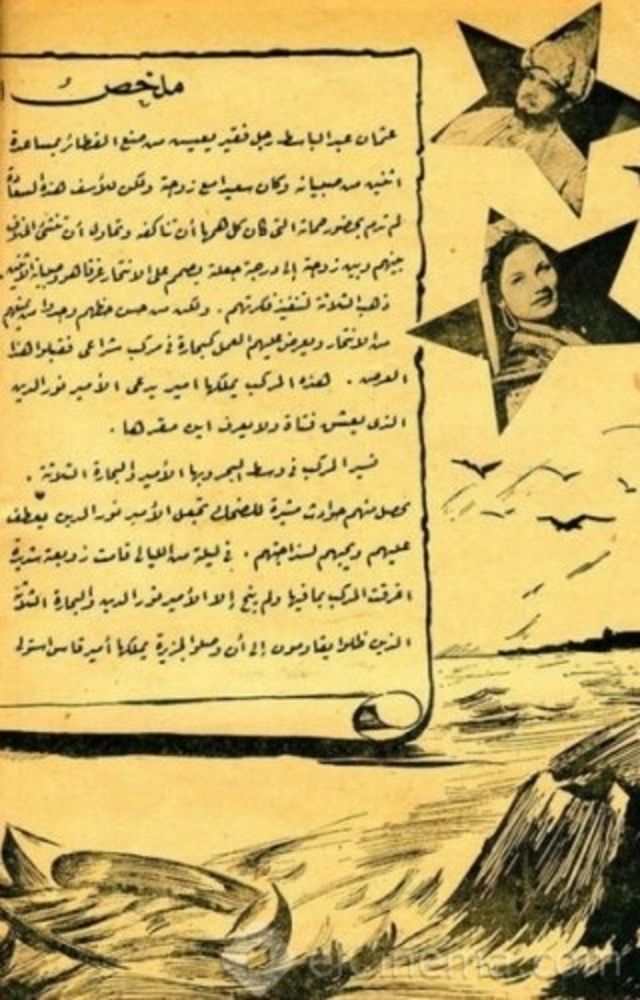 ملخص
عثمان عبد الباسط رجل فقير يعيش من صنع الفطائر بمساعدة
اثنين من صبيانه وكان سعيدا مع زوجته ولكن للأسف هذه السعادة
لم تدم بحضور حماته التى كان كل همها أن تناكفه وتحاول أن تنشئ الخلاف
بينهم وبين زوجته إلى درجة جعلته يصمم على الانتحار غرقا هو وصبيانه الاثنين
ذهب الثلاثة لتنفيذ فكرتهم . ولكن من حسن حظهم وجدوا من
من الانتحار ويعرض عليهم العمل كبحارة فى مركب شراعى فقبلوا هذا
العرض . هذه المركب يملكها امير يدعى الأمير نور الدين
الذى يعشق فتاة ولا يعرف اين مقرها .
تسير المركب فى وسط البحر وبها الأمير والبحارة الثلاثة .
يحصل منهم حوادث مثيرة للضحك تجعل الأمير نور الدين يعطف
عليهم ويحبهم لسذاجتهم . فى ليلة من الليالى قامت زوبعة شديدة
اغرقت المركب بما فيها ولم ينج إلا الأمير نور الدين والبحارة الثلاثة
الذين ظلوا يقاومون إلى أن وصلوا لجزيرة يملكها أمير قاس استولى
elcinema.com